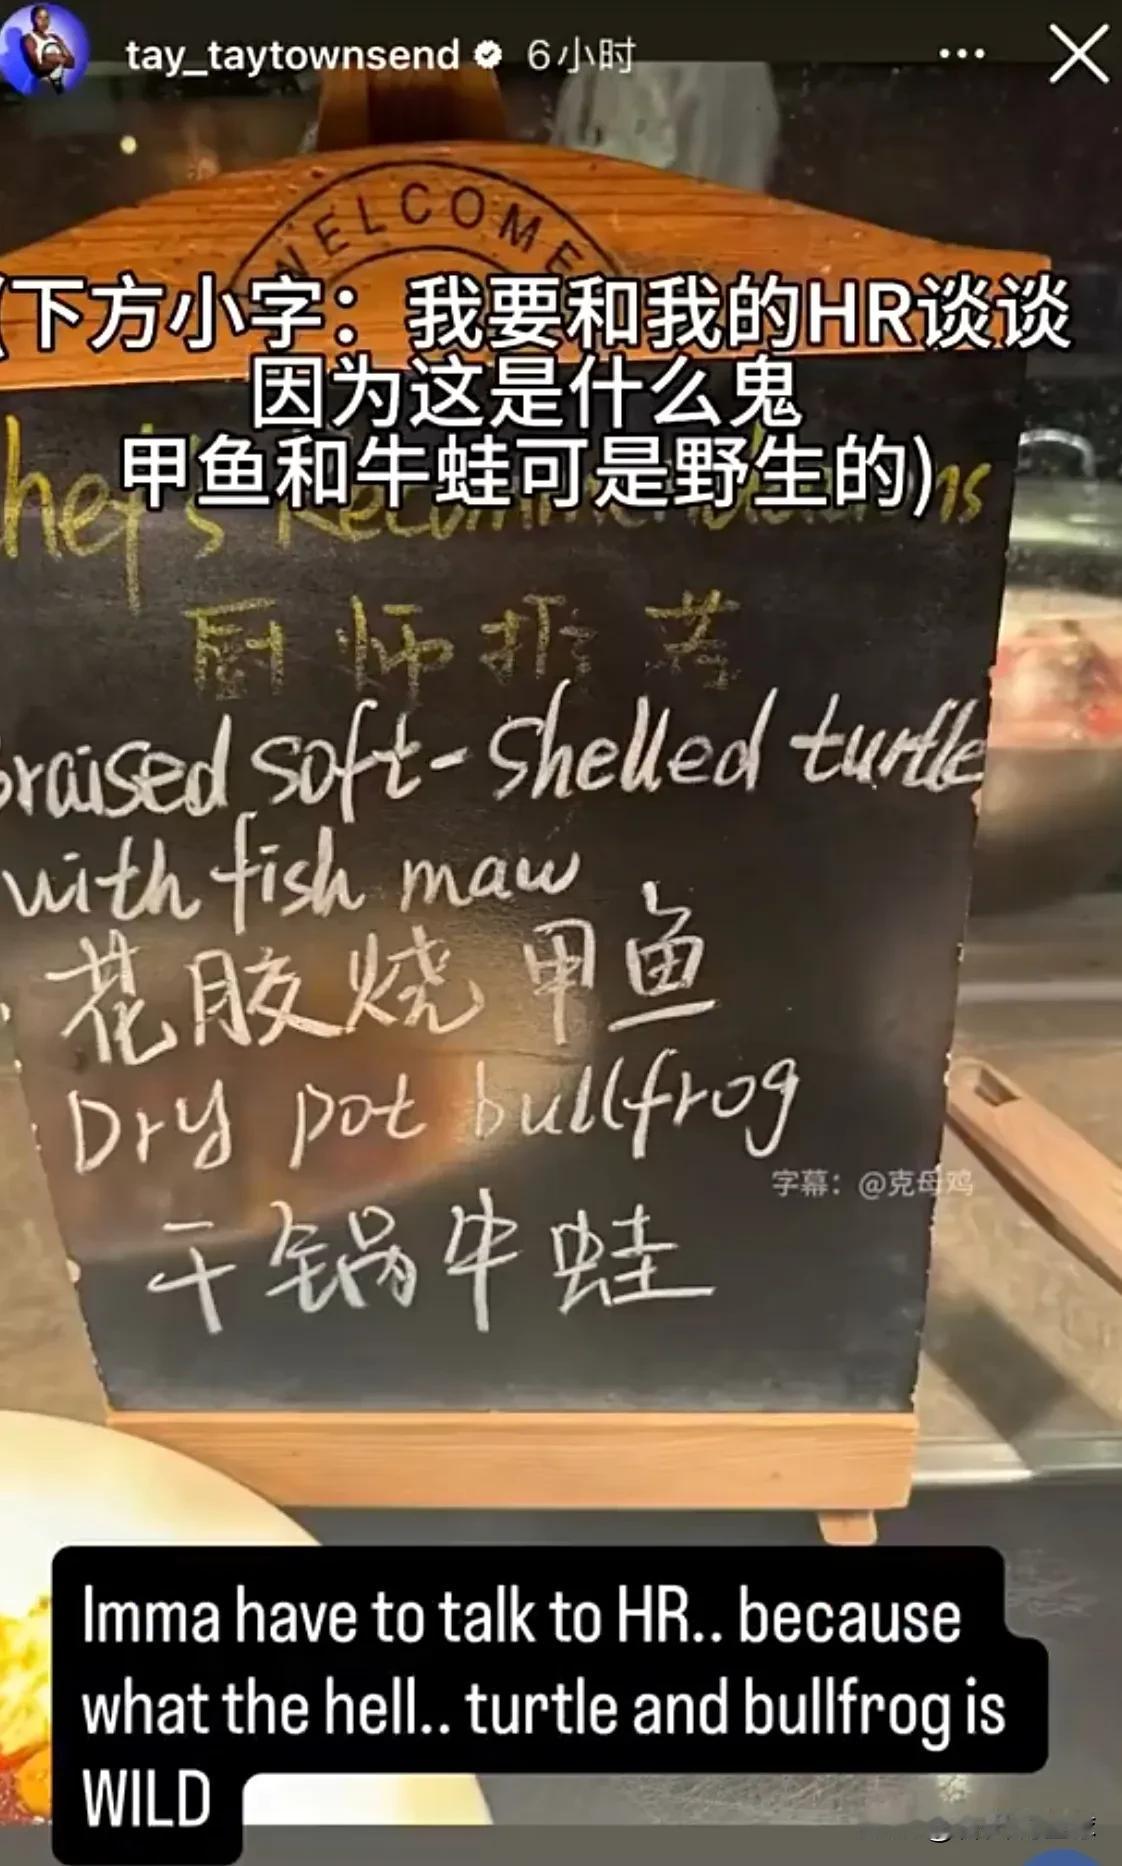 tay_taytownsend 6小时
WELCOME
(下方小字：我要和我的HR谈谈
因为这是什么鬼
甲鱼和牛蛙可是野生的)
hef's Recommendations
厨师推荐
Braised soft-shelled turtle
with fish maw
花胶烧甲鱼
Dry pot bullfrog
字幕：@克母鸡
干锅牛蛙
Imma have to talk to HR.. because
what the hell.. turtle and bullfrog is
WILD